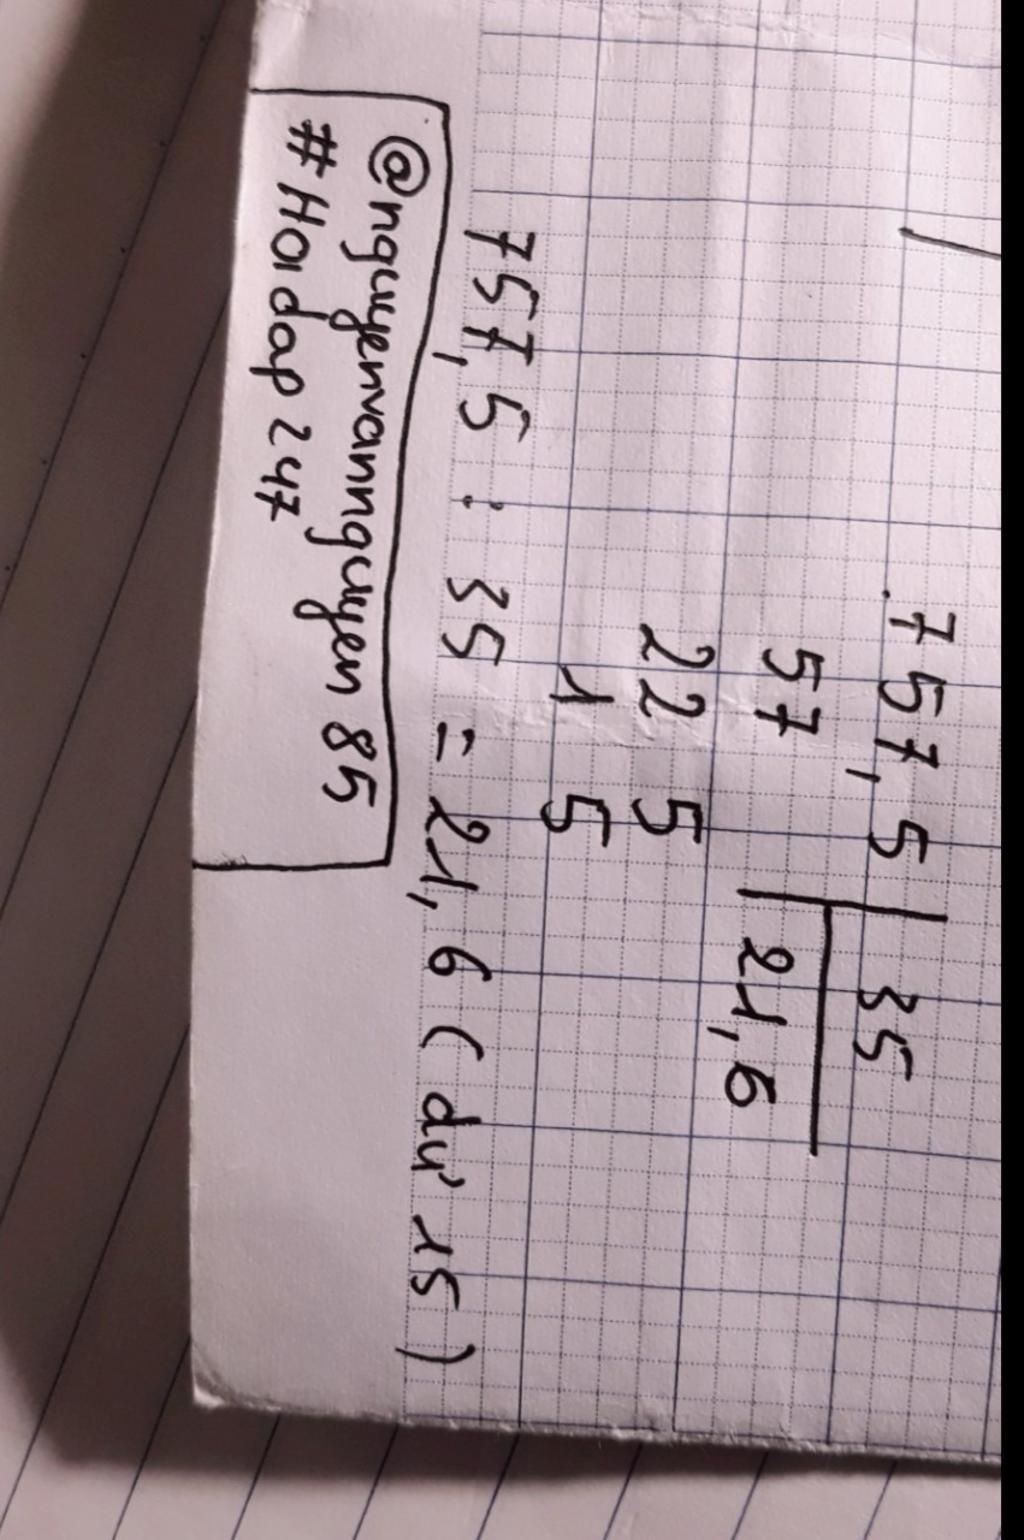 757,5 35
57 21,6
22 5
1 5
757,5 : 35 = 21,6 (dư 15)
@nguyenvannguyen85
#Hoidap247